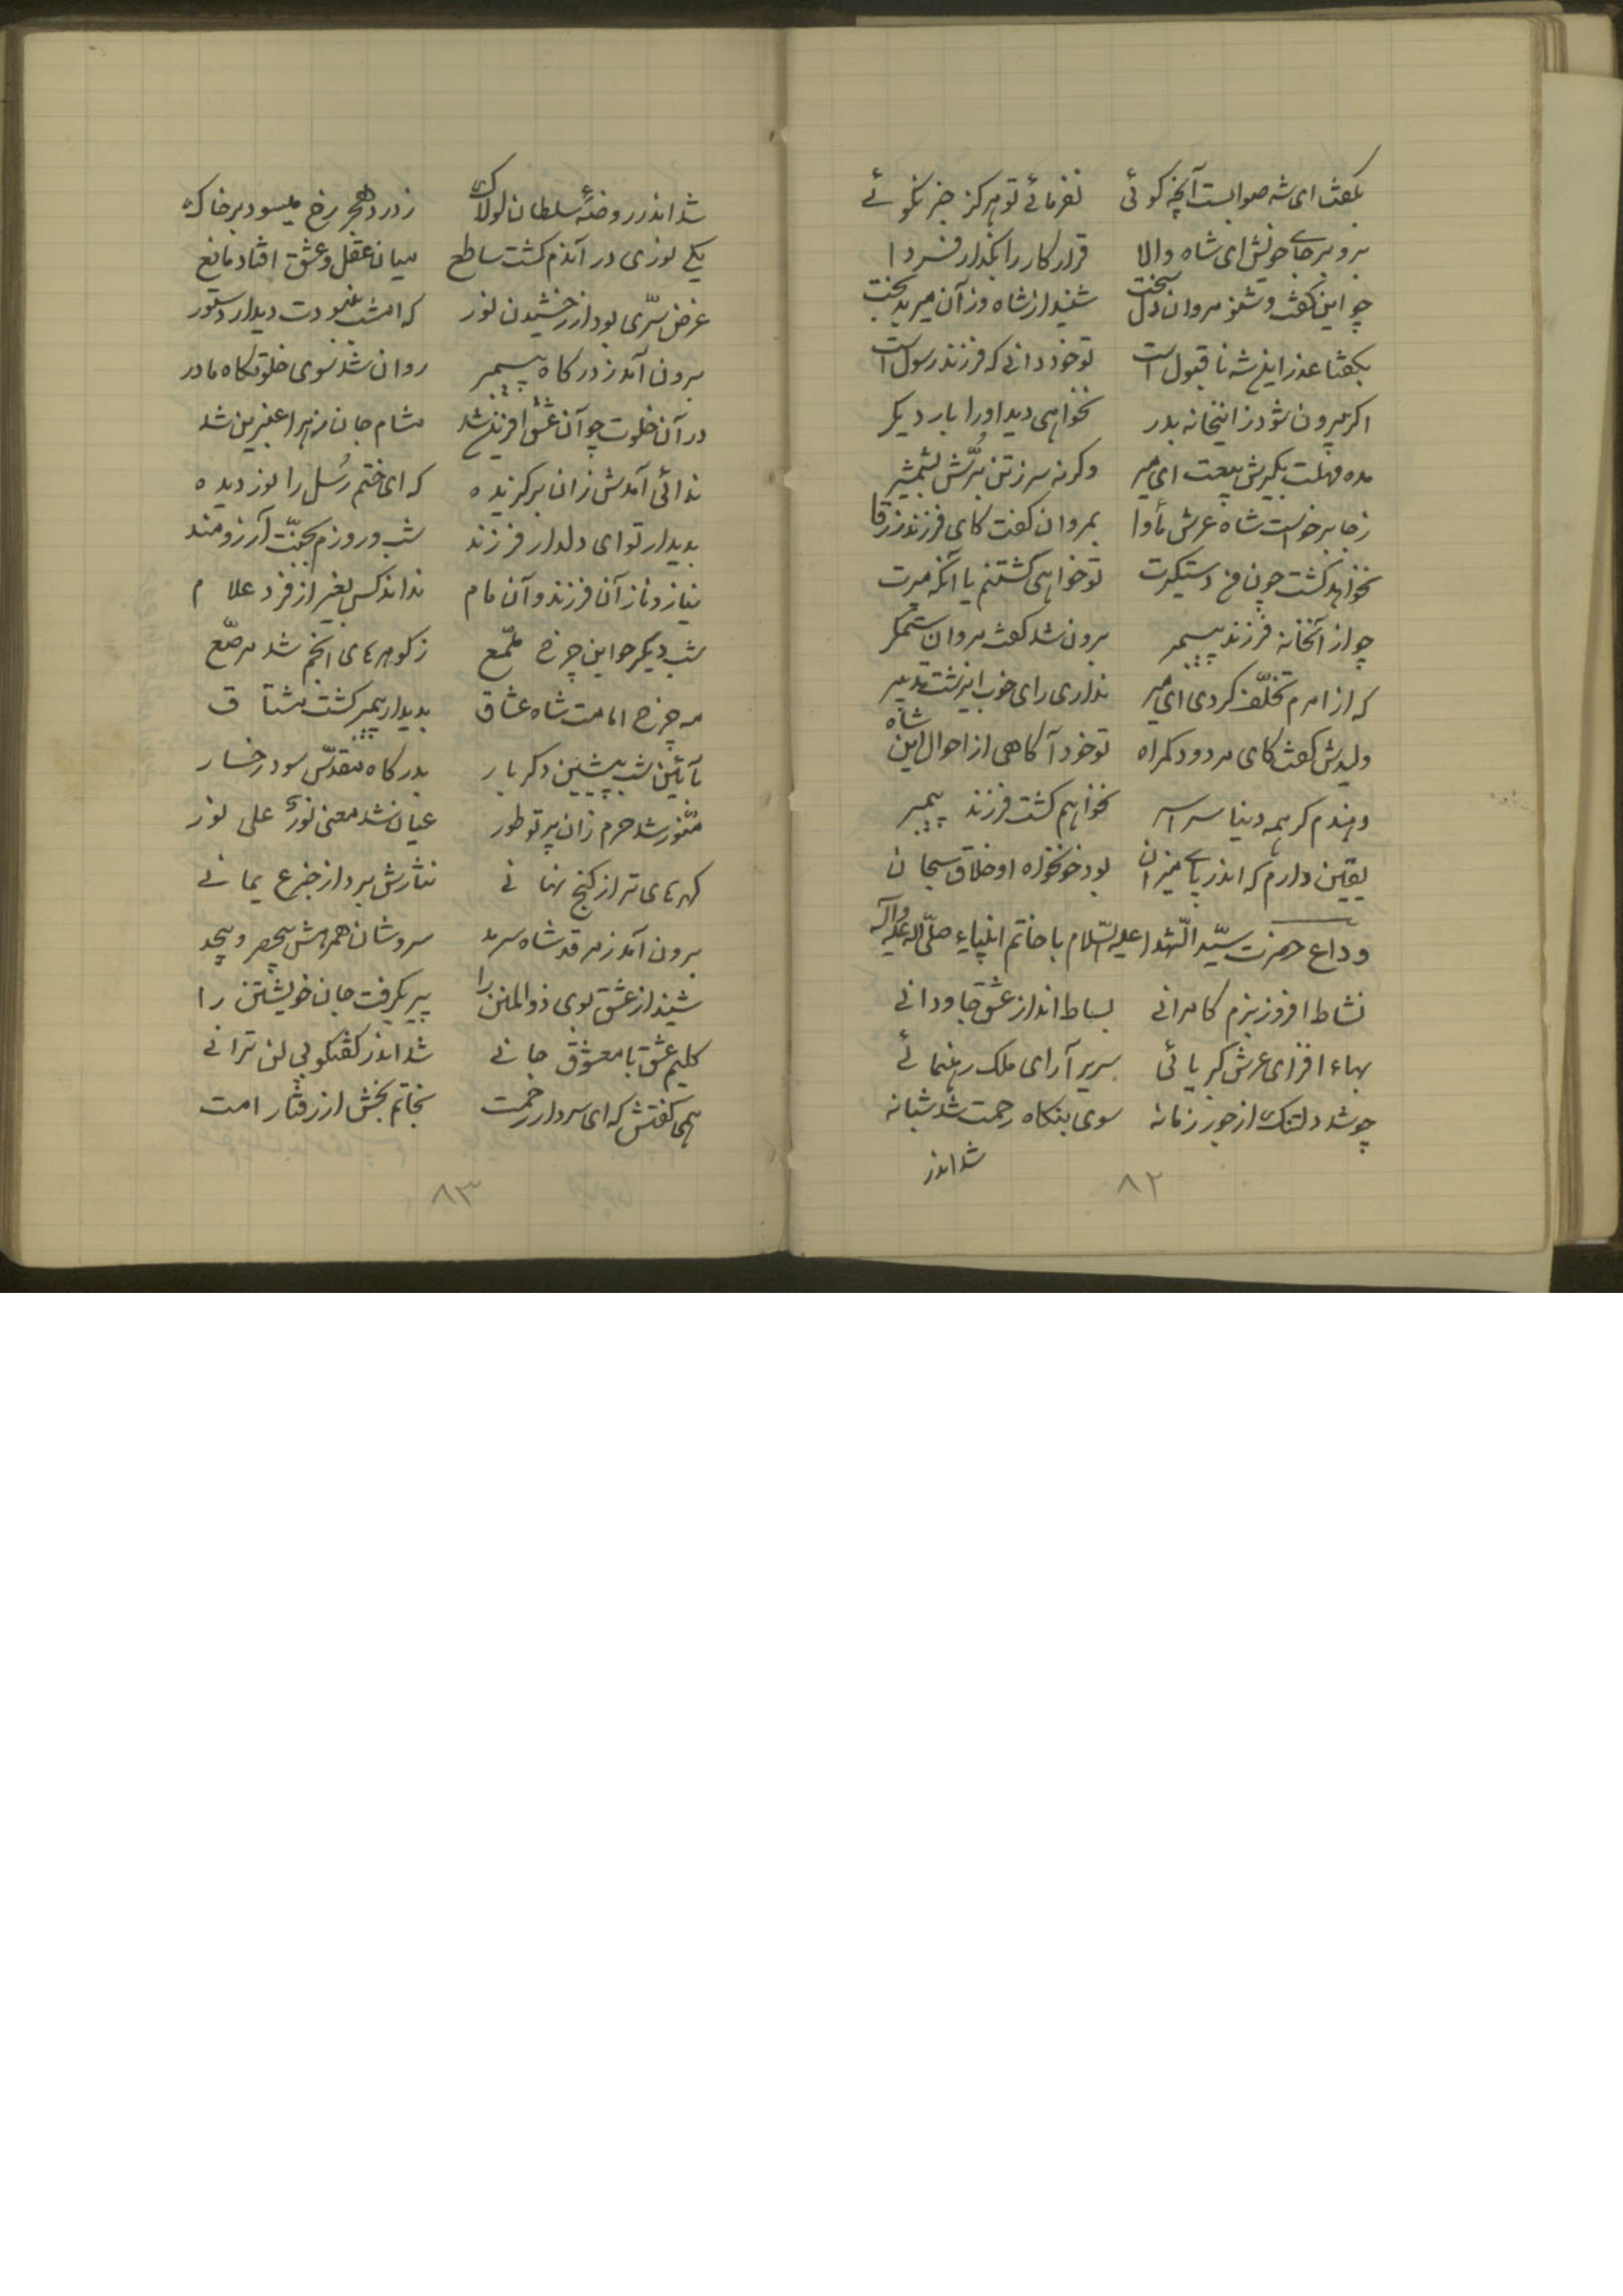 بگفت ای شه صوابست آنچه گوئی نفرمائے تو هرگز جز نکوئے
برو بر جاے خویش ای شاه والا قرار کار را بگذار فردا
چو این گفت و شنو مروان دل سخت شنید از شاه وز آن میر بدبخت
بگفتا عذر این شه نا قبول است تو خود دانے که فرزند رسول است
اگر بیرون شود زاینخانه بدر نخواهی دید او را بار دیگر
مده مهلت بگیرش بیعت ای میر وگرنه سر ز تن برّش بشمشیر
ز جا برخواست شاه عرش مأوا بمروان گفت کای فرزند زرقا
نخواهد کشت چون من دستگیرت تو خواهی کشتنم یا آنکه میرت
چو از آنخانه فرزند پیمبر برون شد گفت مروان ستمگر
که از امرم تخلّف کردی ای میر نداری رای خوب اینست تدبیر
ولیدش گفت کای مردود گمراه تو خود آگاهی از احوال این شاه
دهندم گر همه دنیا سراسر نخواهم کشت فرزند پیمبر
یقین دارم که اندر پاے میزان بود خونخواه او خلاق سبحان
وداع حضرت سیّد الشّهدا علیه السّلام با خاتم انبیاء صلّی الله علیه وآله
نشاط افروز بزم کامرانے بساط انداز عشق جاودانے
بهاء افزای عرش کبریائی سریر آرای ملک رهنمائے
چو شد دلتنگ از جور زمانه سوی بنگاه رحمت شد شبانه
شد اندر
۸۲
شد اندر روضهٔ سلطان لولاک ز درد هجر رخ میسود بر خاک
یکے نوری در آندم گشت ساطع میان عقل و عشق افتاد مانع
غرض سرّی بود از رخشیدن نور که امشب نبودت دیدار دستور
برون آمد ز درگاه پیمبر روان شد سوی خلوتگاه مادر
در آن خلوت چو آن عشق آفرین شد مشام جان زهرا عنبرین شد
ندائی آمدش زان برگزیده که ای ختم رُسل را نور دیده
بدیدار تو ای دلدار فرزند شب و روزم بجنّت آرزومند
نیاز و ناز آن فرزند و آن مام نداند کس بغیر از فرد علام
شب دیگر چو این چرخ ملمّع ز گوهرهای انجم شد مرصّع
مه چرخ امامت شاه عشاق بدیدار پیمبر گشت مشتاق
بآئین شب پیشین دگر بار بدرگاه مقدّس سود رخسار
منّور شد حرم زان پرتو طور عیان شد معنی نورٌ علی نور
گهرهای تر از گنج نهانے نثارش برد از جزع یمانے
برون آمد ز مرقد شاه سرمد سروشان همرهش بیحصر و بیحد
شنید از عشق بوی ذوالمنن را ببر بگرفت جان خویشتن را
کلیم عشق با معشوق جانے شد اندر گفتگوی لن ترانے
همی گفتش که ای سردار رحمت نجاتم بخش از رفتار امت
۸۳